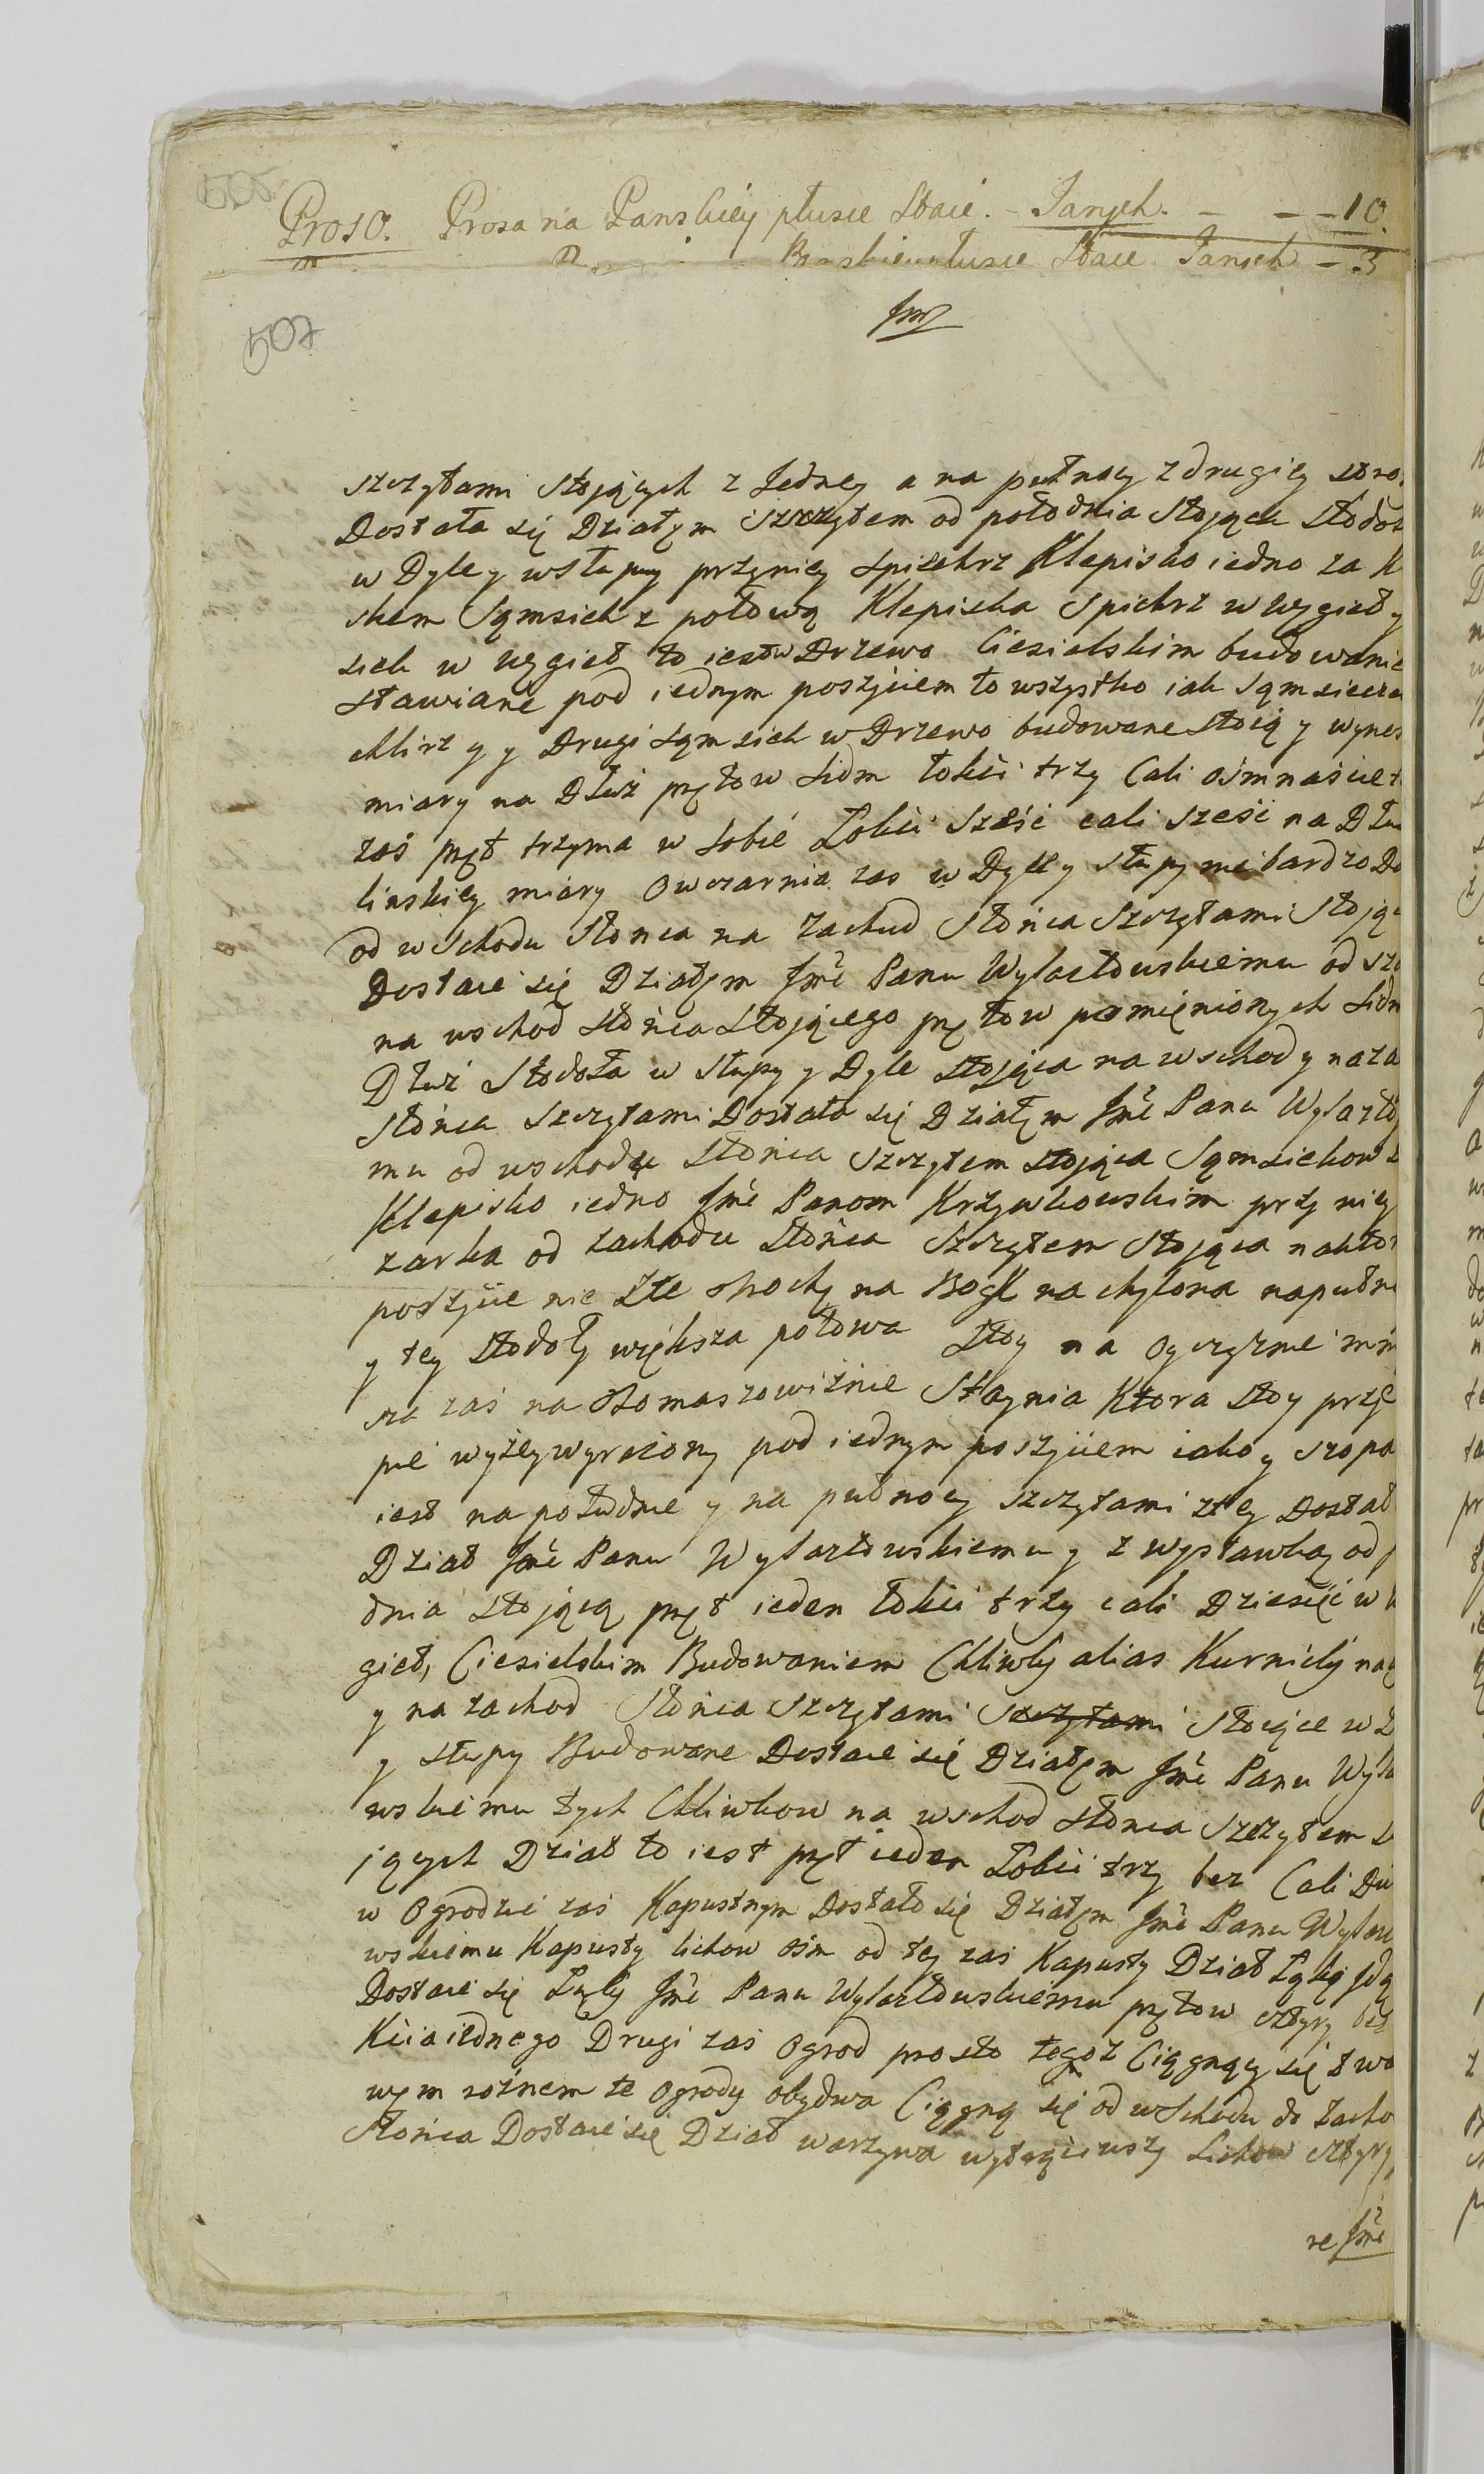 505
Proso. Prosa na Panskiey płusie Staie. - Janych. - - - 10.
Staie Janych - 3
507
Jmć
szczytami stojących z Jedney a na pułnocy z drugiey stro
Dostała się Działem szczytem od południa stojąca stodoł
w Dyle y wsłupy przyniey spichrz Klepisko iedno za K
skem Sąmsiek z połową Klepiska Spichrz w węgieł y
siek w węgieł to iest w Drzewo Ciesielskim budowanie
stawiane pod iednym poszyciem to wszystko iak sąmsiecza
chlirz y y Drugi sąmsiek w Drzewo budowane stoią y wynes
miary na Dłuż prętow siedm łokci trzy Cali ośmnaście
zaś pręt trzyma w sobie Łokci sześć cali sześć na Dłu
linskiey miary Owczarnia zas w Dyle y słupy nie bardzo Do
od wschodu słonca na zachud słońca szczytami stoją
Dostaie się Działem Jmć Panu Wylazłowskiemu od szc
na wschod słońca stojącego prętow pomienionych siedm
Dłuż stodoła w słupy y Dyle stojąca na wschod y na za
słońca szczytami Dostało się Działem Jmć Panu Wylazło
mu od wschodu słońca szczytem stojąca Sąmsiekow
Klepisko iedno Jmć Panom Krzywkowskim przy niey
zarka od zachodu słońca szczytem stojąca naktor
poszycie nie złe trochy na Bog nachylona napułn
y tey stodoły większa połowa stoy na Oyczyznie mni
sza zaś na Tomaszowiźnie Staynia Ktora stoy przy
pie wyżey wyrażony pod iednym poszyciem iako y szopa
iest na południe y na pułnocy szczytami z tey Dostał
Dział Jmć Panu Wylazłowskiemu y z wystawką od p
dnia stojącą pręt ieden łokci trzy cali Dziesięć w W
gieł, Ciesielskim Budowaniem Chliwki alias Kurniki na
y na zachod słońca szczytami szczytami stoiące w D
y słupy Budowane Dostaie się Działem Jmć Panu Wyla
wskiemu tych Chliwkow na wschod słonca szczytem s
jących Dział to iest pręt ieden Łokci trzy bez Cali Dw
w Ogrodzie zaś Kapustnym Dostało się Działem Jmć Panu Wylaz
wskiemu Kapusty lichow ośm od tey zaś Kapusty Dział Łąki Jdą
Dostaie się Łąki Jmć Panu Wylazłowskiemu prętow cztyry bez
Kcia iednego Drugi zaś Ogrod prosto tegoż Ciągnący się
wym rożnem te Ogrody obydwa Ciągną się od wschodu do zacho
słońca Dostaie się Dział warzywa wytąciwszy Lichow cztyry
re Jmć